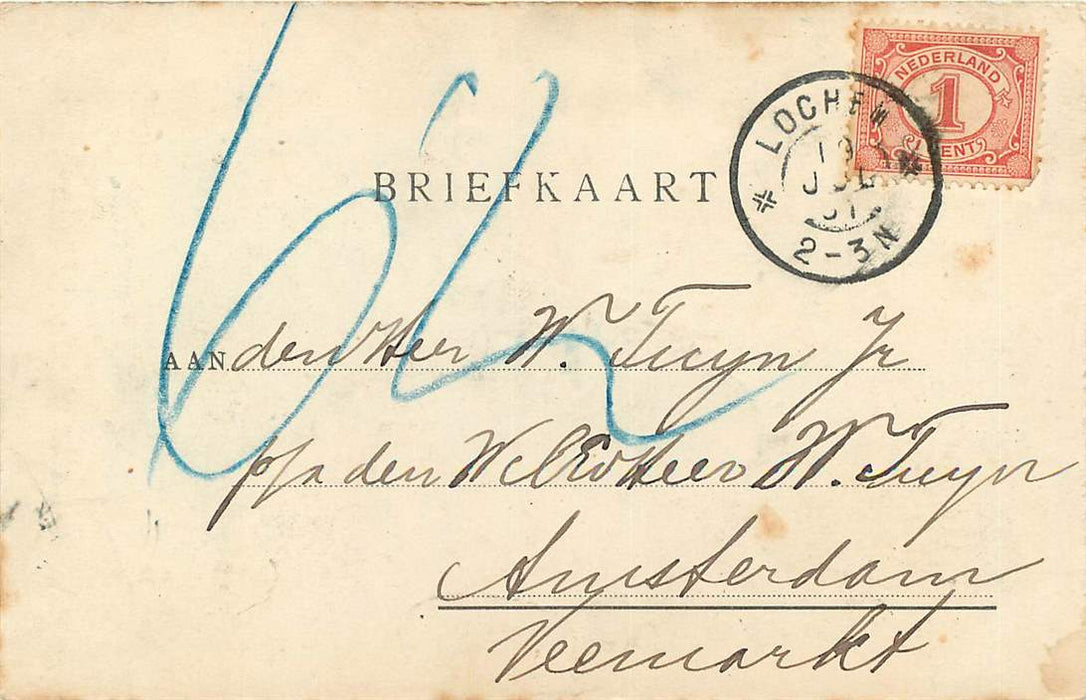 NEDERLAND
1
CENT
LOCHEM
19
JUL
01
2-3N
BRIEFKAART
AAN den Heer W. Tuyn Jr
p/a den WelEd Heer W. Tuyn
Amsterdam
Veemarkt